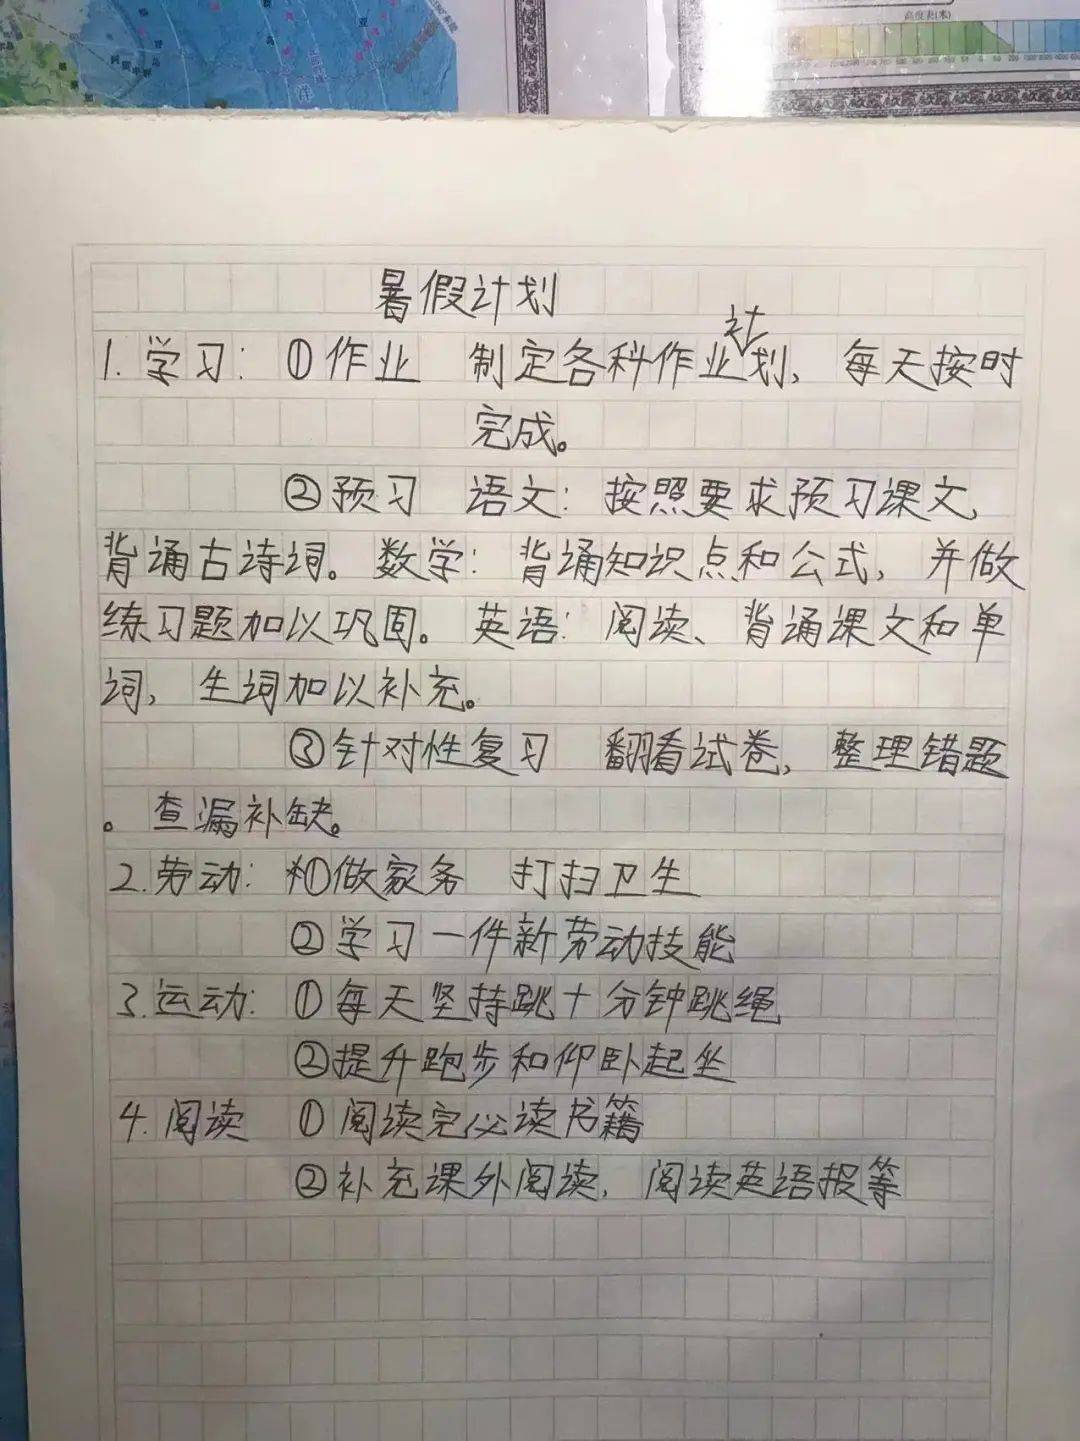 高度表(米)
暑假计划
1.学习：①作业 制定各科作业计划，每天按时
完成。
②预习 语文：按照要求预习课文，
背诵古诗词。数学：背诵知识点和公式，并做
练习题加以巩固。英语：阅读、背诵课文和单
词，生词加以补充。
③针对性复习 翻看试卷，整理错题
。查漏补缺。
2.劳动：①做家务 打扫卫生
②学习一件新劳动技能
3.运动：①每天坚持跳十分钟跳绳
②提升跑步和仰卧起坐
4.阅读 ①阅读完必读书籍
②补充课外阅读，阅读英语报等